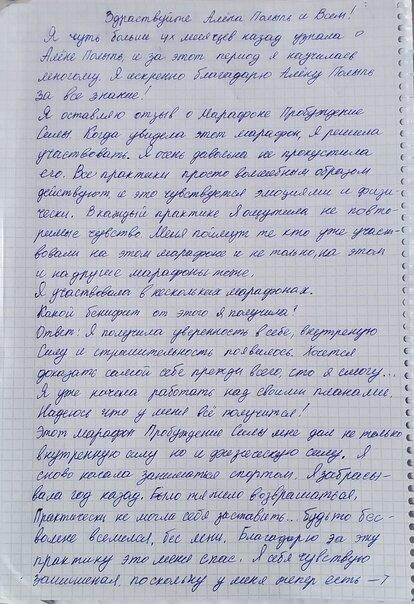 Здраствуйте Алёна Полынь и Всем!
Я чуть больше 4х месяцев назад узнала о
Алёне Полынь, и за этот период я научилась
многому. Я искренно благодарю Алёну Полынь
за все знание!
Я оставляю отзыв о Марафоне Пробуждение
Силы. Когда увидела этот марафон, я решила
участвовать. Я очень давольна не пропустила
его. Все практики просто волшебном образом
действуют, и это чувствуется эмоциями и физи-
чески. В каждый практике Я ощутила не повто-
римые чувство. Меня поймут те кто уже участ-
вовали на этом марафоне и не только на этом
и на другие марафоны тоже.
Я участвовала в нескольких марафонах.
Какой бенифит от этого я получила?
Ответ: Я получила уверенность в себе, внутреную
Силу и стремительность появилось. Хочется
доказать самой себе прежди всего, что я смогу...
Я уже начела работать над своими планами.
Надеюсь что у меня всё получится!
Этот марафон Пробуждение Силы мне дал не только
внутренную силу но и физическую силу. Я
снова начала заниматься спортом. Я забрасы-
вала год назад. Было тяжело возвращаться,
Практически не могла себя заставить... Будьто бес-
волие вселился, бес лени. Благодарю за эту
практику это меня спас. Я себя чувствую
защищеная, поскольку у меня теперь есть →